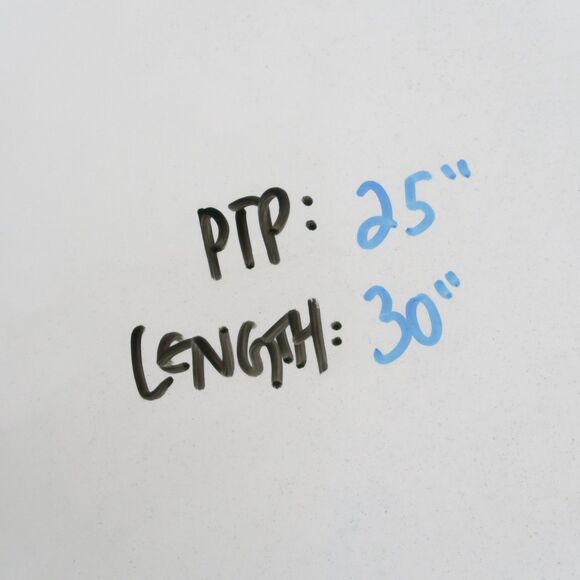 PTP: 25"
LENGTH: 30"